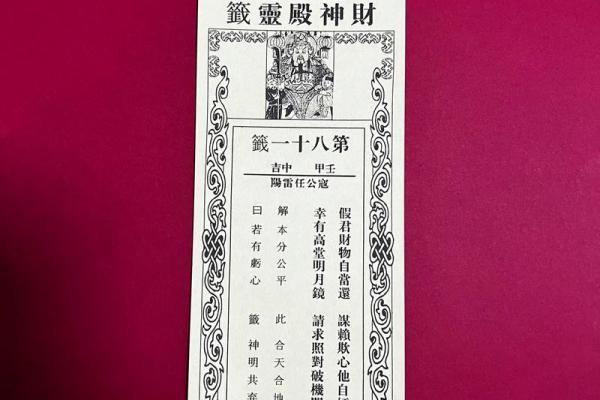 財神殿靈籤
第八十一籤
壬甲 中吉
寇公任雷陽
假君財物自當還 謀賴欺心他自
幸有高堂明月鏡 請求照對破機
解 本分公平 此 合天合地
曰 若有虧心 籤 神明共棄